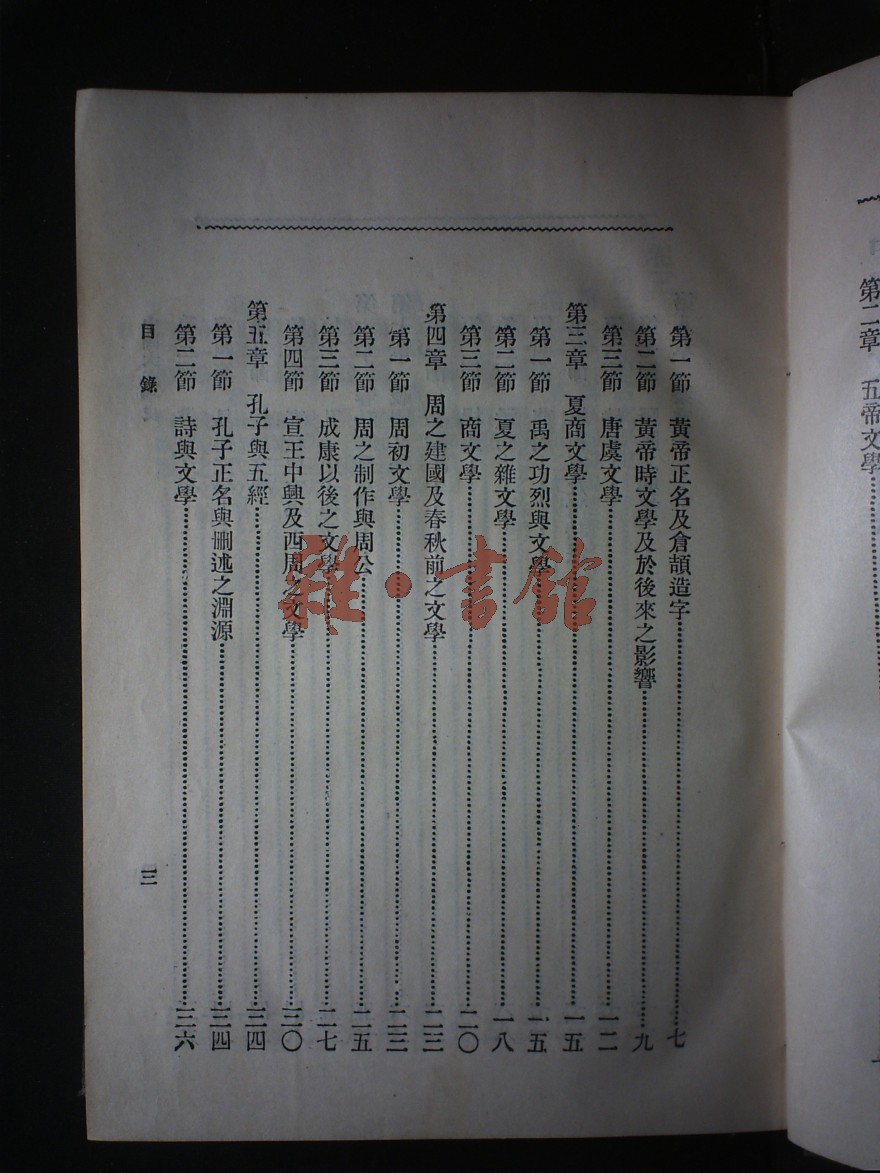 第二章　五帝文學
第一節　黃帝正名及倉頡造字 七
第二節　黃帝時文學及於後來之影響 九
第三節　唐虞文學 一二
第三章　夏商文學 一五
第一節　禹之功烈與文學 一五
第二節　夏之雜文學 一八
第三節　商文學 二〇
第四章　周之建國及春秋前之文學 二三
第一節　周初文學 二三
第二節　周之制作與周公 二五
第三節　成康以後之文學 二七
第四節　宣王中興及西周之文學 三〇
第五章　孔子與五經 三四
第一節　孔子正名與刪述之淵源 三四
第二節　詩與文學 三六
目　錄　三
雜·書館